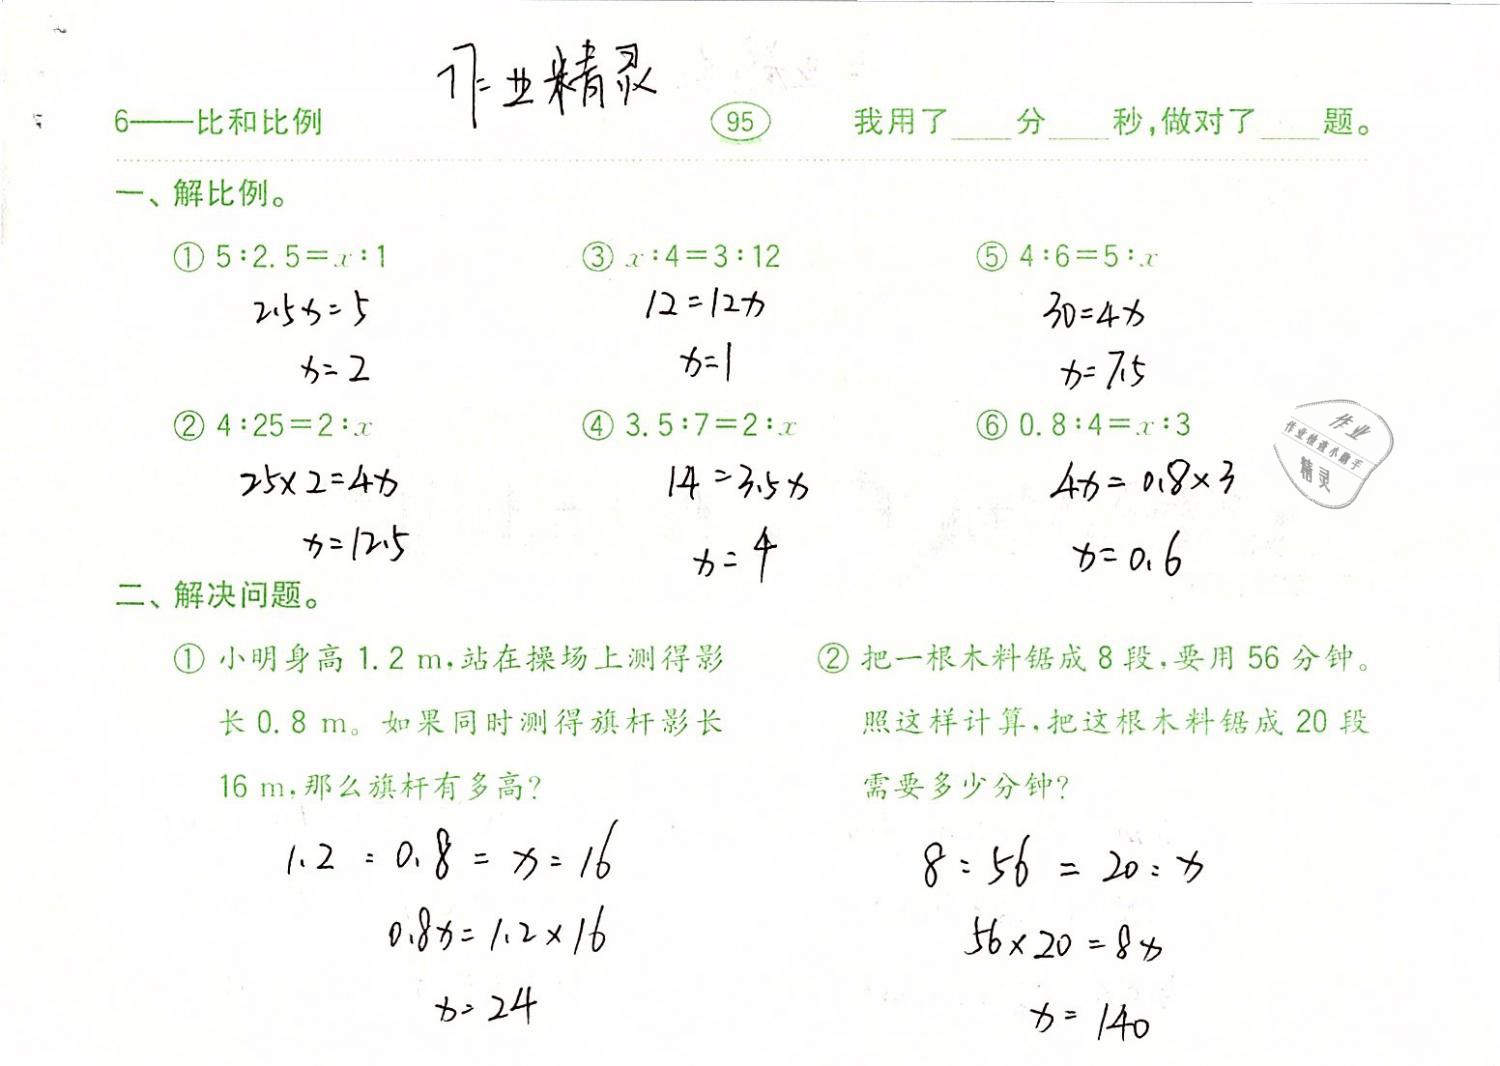 作业精灵
6——比和比例 95 我用了____分____秒,做对了____题。
一、解比例。
① 5:2.5=x:1 ③ x:4=3:12 ⑤ 4:6=5:x
2.5x=5 12=12x 30=4x
x=2 x=1 x=7.5
② 4:25=2:x ④ 3.5:7=2:x ⑥ 0.8:4=x:3
25×2=4x 14=3.5x 4x=0.8×3
x=12.5 x=4 x=0.6
作业
作业检查小助手
精灵
二、解决问题。
① 小明身高1.2 m,站在操场上测得影
长0.8 m。如果同时测得旗杆影长
16 m,那么旗杆有多高?
1.2:0.8=x=16
0.8x=1.2×16
x=24
② 把一根木料锯成8段,要用56分钟。
照这样计算,把这根木料锯成20段
需要多少分钟?
8:56=20:x
56×20=8x
x=140